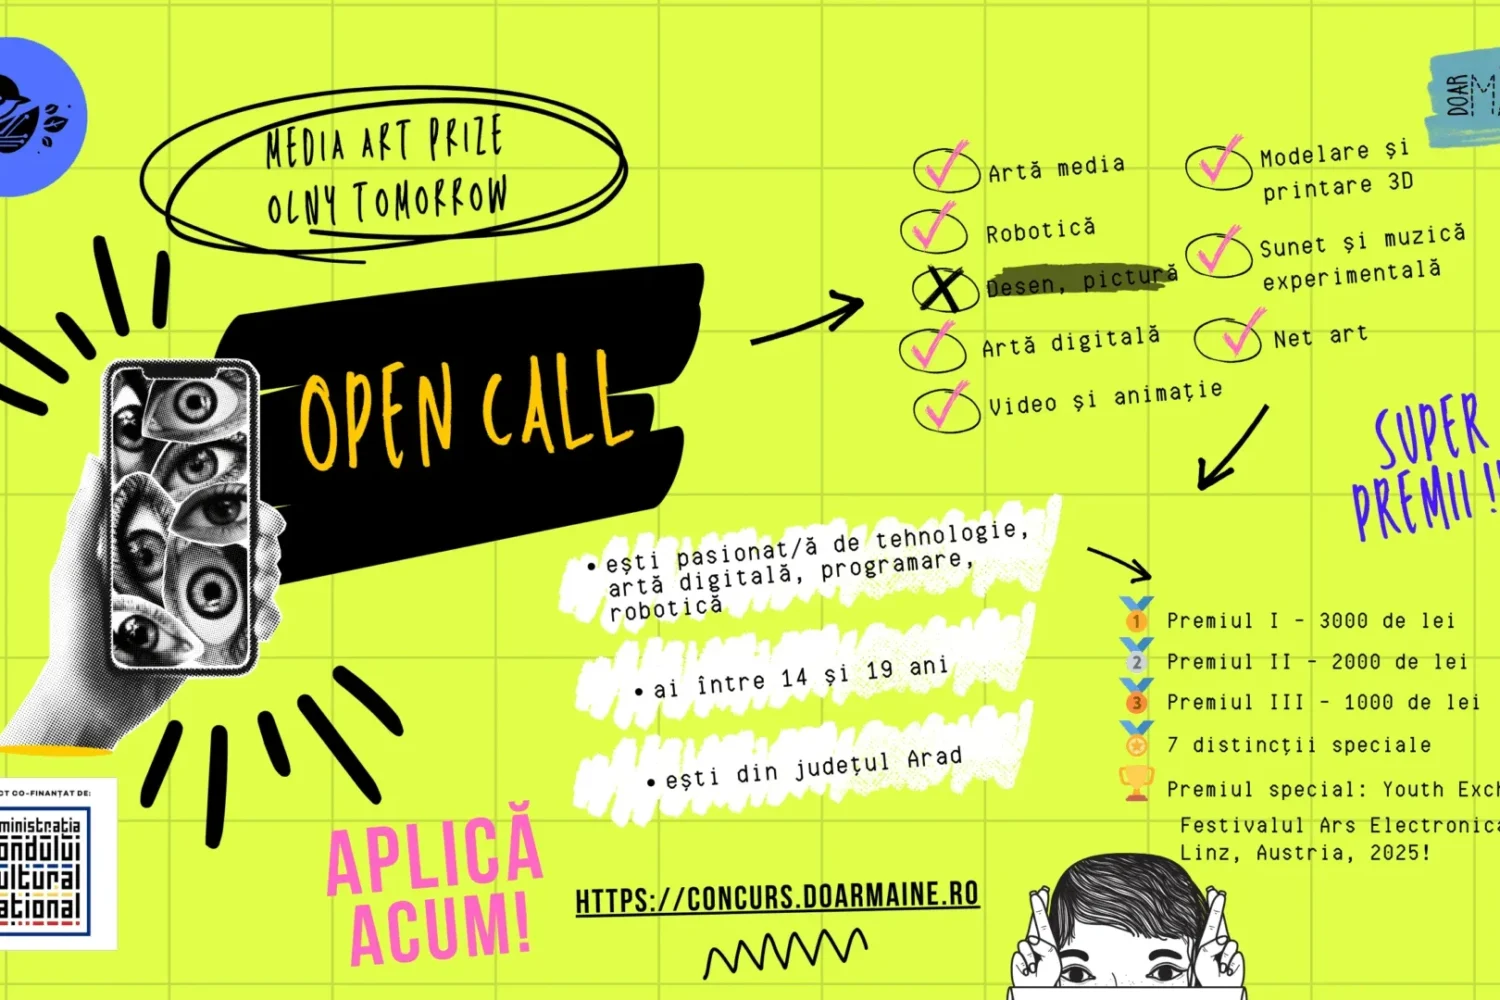 MEDIA ART PRIZE
OLNY TOMORROW
OPEN CALL
DOAR
Artă media
Robotică
Desen, pictură
Artă digitală
Video și animație
Modelare și
printare 3D
Sunet și muzică
experimentală
Net art
SUPER
PREMII !!
• ești pasionat/ă de tehnologie,
artă digitală, programare,
robotică
• ai între 14 și 19 ani
• ești din județul Arad
1 Premiul I - 3000 de lei
2 Premiul II - 2000 de lei
3 Premiul III - 1000 de lei
7 distincții speciale
Premiul special: Youth Exch
Festivalul Ars Electronica
Linz, Austria, 2025!
CT CO-FINANȚAT DE:
ministrația
ondului
ultural
ațional
APLICĂ
ACUM!
HTTPS://CONCURS.DOARMAINE.RO